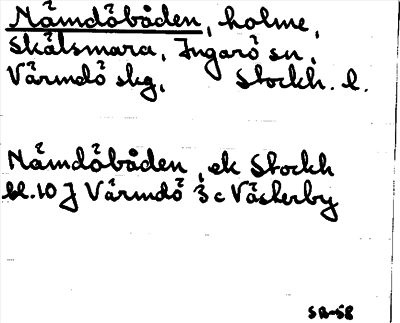 Nämdöbåden, holme,
Skälsmara, Ingarö sn,
Värmdö skg, Stockh. l.
Nämdöbåden, ek Stockh
bl. 10 J Värmdö 3 c Västerby
SR-58